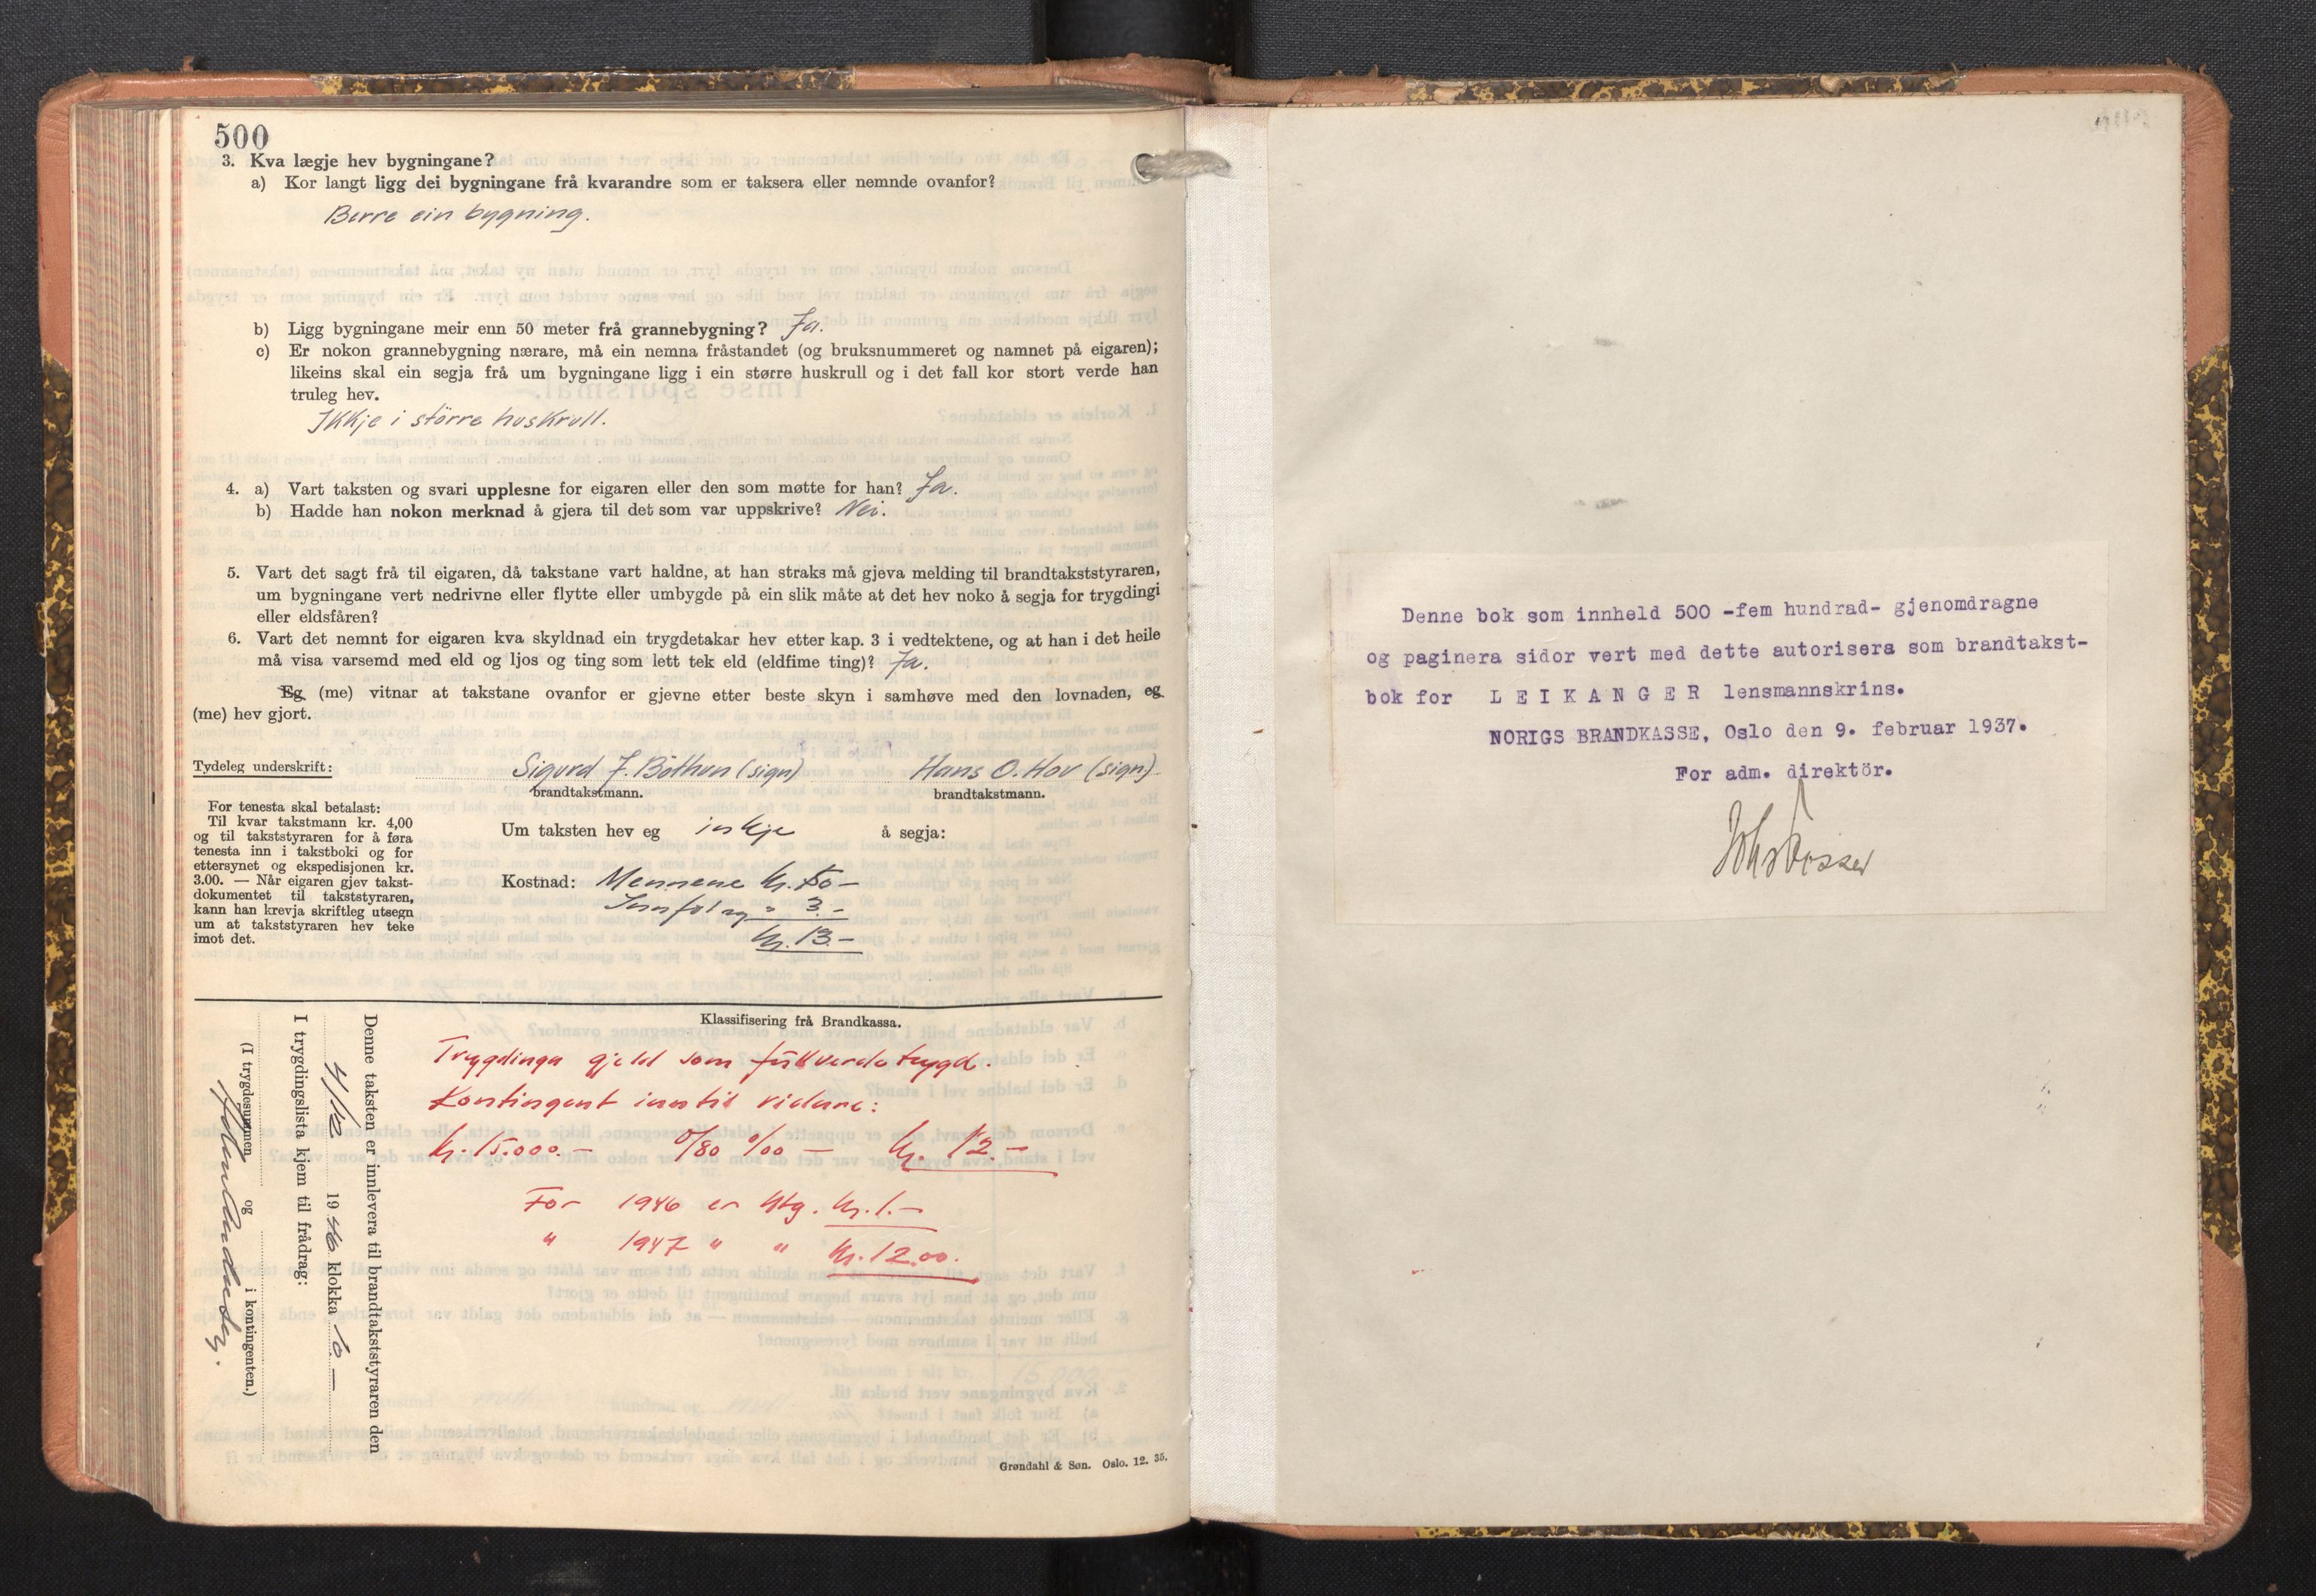 500
3. Kva lægje hev bygningane?
a) Kor langt ligg dei bygningane frå kvarandre som er taksera eller nemnde ovanfor?
Berre ein bygning.
b) Ligg bygningane meir enn 50 meter frå grannebygning? Ja.
c) Er nokon grannebygning nærare, må ein nemna fråstandet (og bruksnummeret og namnet på eigaren);
likeins skal ein segja frå um bygningane ligg i ein større huskrull og i det fall kor stort verde han
truleg hev.
Ikkje i större huskrull.
4. a) Vart taksten og svari upplesne for eigaren eller den som møtte for han? Ja.
b) Hadde han nokon merknad å gjera til det som var uppskrive? Nei.
5. Vart det sagt frå til eigaren, då takstane vart haldne, at han straks må gjeva melding til brandtakststyraren,
um bygningane vert nedrivne eller flytte eller umbygde på ein slik måte at det hev noko å segja for trygdingi
eller eldsfåren?
6. Vart det nemnt for eigaren kva skyldnad ein trygdetakar hev etter kap. 3 i vedtektene, og at han i det heile
må visa varsemd med eld og ljos og ting som lett tek eld (eldfime ting)? Ja.
Eg (me) vitnar at takstane ovanfor er gjevne etter beste skyn i samhøve med den lovnaden, eg
(me) hev gjort.
Tydeleg underskrift: Sigurd J. Böthun (sign) Hans O. Hov (sign)
brandtakstmann. brandtakstmann.
For tenesta skal betalast:
Til kvar takstmann kr. 4,00
og til takststyraren for å føra
tenesta inn i takstboki og for
ettersynet og ekspedisjonen kr.
3.00. — Når eigaren gjev takst-
dokumentet til takststyraren,
kann han krevja skriftleg utsegn
um at takststyraren hev teke
imot det.
Um taksten hev eg inkje å segja:
Kostnad: Mennene kr. 10 –
" 3.–
kr. 13.–
Klassifisering frå Brandkassa.
Trygdinga gjeld som fullverdetrygd.
Kontingent inntil vidare:
kr. 15.000.– 0/80 0/00 – kr. 12.–
For 1946 er ktg. kr. 1.–
" 1947 " " kr. 12.00.
Denne taksten er innlevera til brandtakststyraren den
4/12 1946 klokka 10 –
I trygdingslista kjem til frådrag:
(I trygdesummen og i kontingenten.)
Grøndahl & Søn. Oslo. 12. 35.
Denne bok som innheld 500 -fem hundrad- gjenomdragne
og paginera sidor vert med dette autorisera som brandtakst-
bok for LEIKANGER lensmannskrins.
NORIGS BRANDKASSE, Oslo den 9. februar 1937.
For adm. direktör.